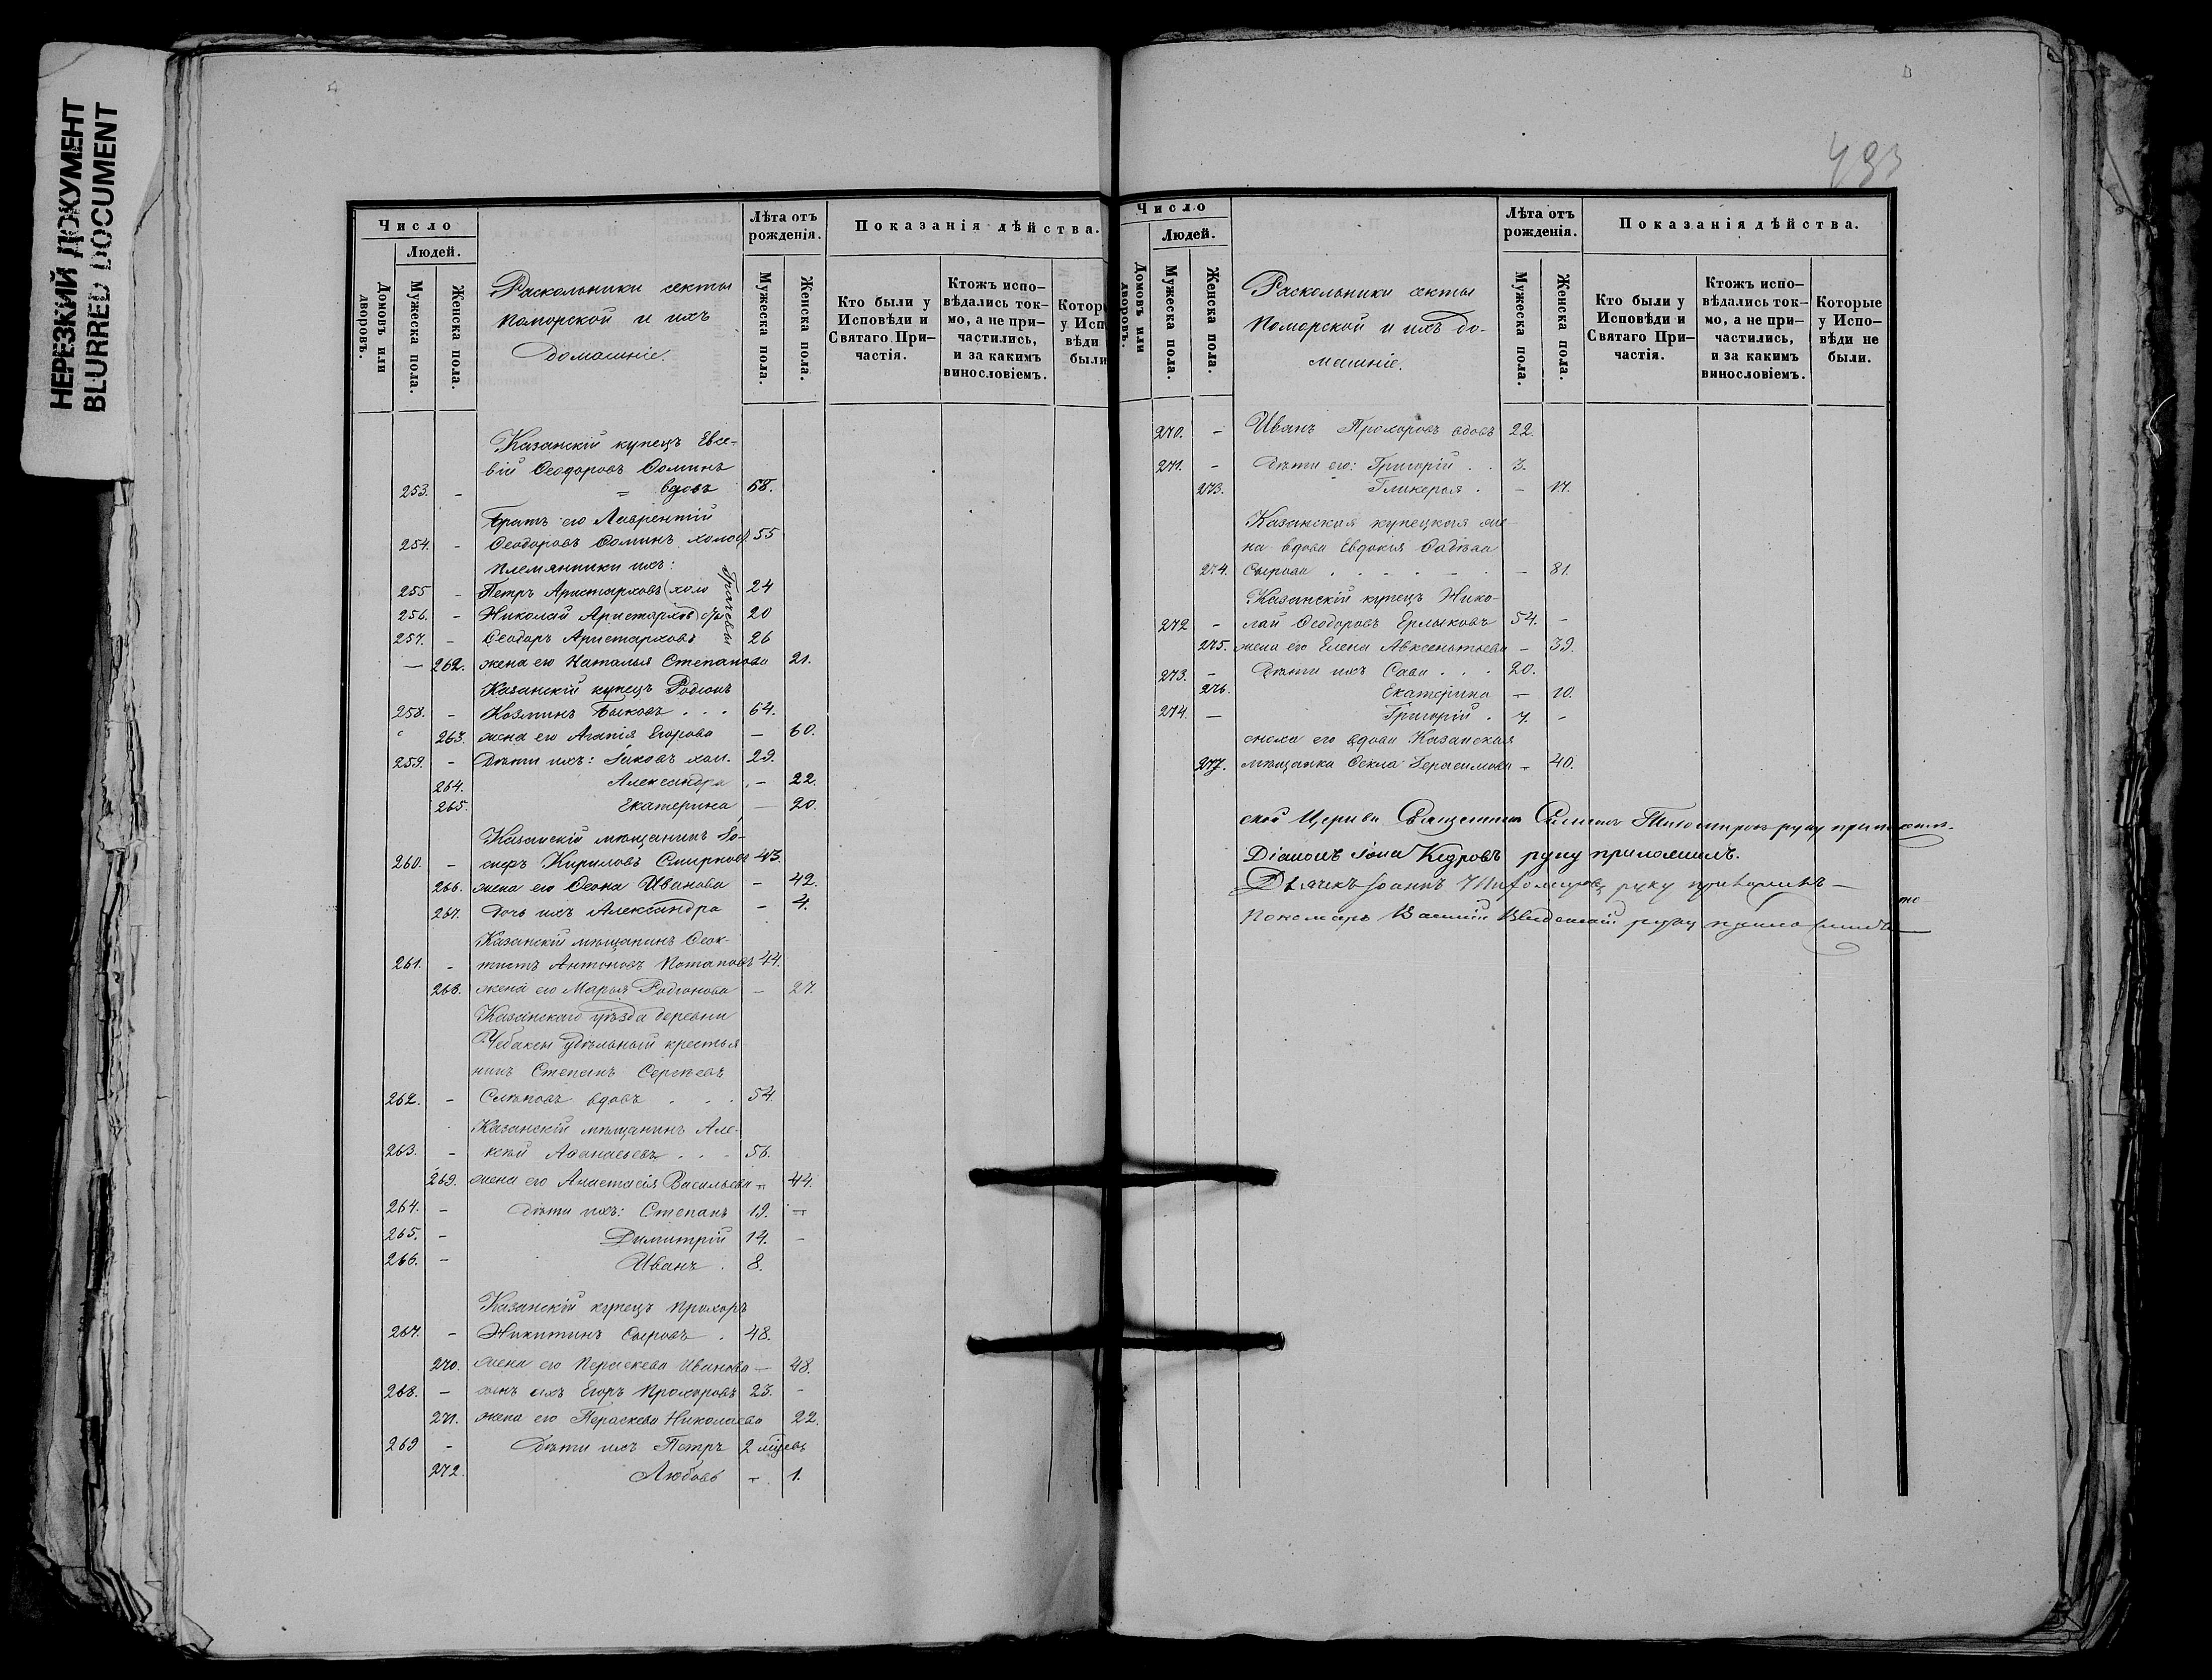 НЕРЕЗКИЙ ДОКУМЕНТ
BLURRED DOCUMENT
Число
Людей.
Домовъ или дворовъ.
Мужеска пола.
Женска пола.
Раскольники секты
Поморской и ихъ
Домашніе.
Лѣта отъ рожденія.
Мужеска пола.
Женска пола.
Показанія дѣйства.
Кто были у Исповѣди и Святаго Причастія.
Ктожъ исповѣдались токмо, а не причастились, и за какимъ винословіемъ.
Котор
у Исп
вѣди
были
Казанскій купецъ Евсе-
вій Ѳеодоровъ Ѳоминъ
253. - = вдовъ 68.
Братъ его Лаврентій
254. - Ѳеодоровъ Ѳоминъ холос. 55
Племянники ихъ:
255 - Петръ Аристарховъ (холо 24
256. - Николай Аристархов) сты 20
257. - Ѳеодоръ Аристарховъ 26
— 262. жена его Наталья Степанова 21.
Казанскій купецъ Родіонъ
258. - Козминъ Быковъ . . . 64.
263. жена его Агапія Егорова — 60.
259. - Дѣти ихъ: Іаковъ хол. 29.
264. Александра . - 22.
265. Екатерина — 20.
Казанскій мѣщанинъ Іо-
260. - сифъ Кириловъ Смирновъ 43.
266. жена его Ѳеона Иванова - 42.
267. Дочь ихъ Александра - 4.
Казанскій мѣщанинъ Ѳеок-
261. - тистъ Антоновъ Потаповъ 44.
268. жена его Марья Родіонова - 27.
Казанскаго уѣзда деревни
Чебаксы удѣльный крестья
нинъ Степанъ Сергѣевъ
262. - вдовъ . . . 54.
Казанскій мѣщанинъ Але-
263. - ксѣй Аѳанасьевъ . . - 56.
269. жена его Анастасія Васильева - 44.
264. - Дѣти ихъ: Степанъ 19. -
265. - Димитрій 14. -
266. - Иванъ . 8.
Казанскій купецъ Прохоръ
267. - Никитинъ Сыровъ . 48.
270. жена его Пераскева Иванова - 48.
268. - сынъ ихъ Егоръ Прохоровъ 23. -
271. жена его Пераскева Николаева 22.
269 - Дѣти ихъ Петръ 2 мѣсяц
272. Любовь - 1.
Число
Людей.
Домовъ или дворовъ.
Мужеска пола.
Женска пола.
Раскольники секты
Поморской и ихъ до-
машніе.
Лѣта отъ рожденія.
Мужеска пола.
Женска пола.
Показанія дѣйства.
Кто были у Исповѣди и Святаго Причастія.
Ктожъ исповѣдались токмо, а не причастились, и за какимъ винословіемъ.
Которые у Исповѣди не были.
270. - Иванъ Прохоровъ вдовъ 22.
271. - Дѣти его: Григорій . . 3.
273. Гликерья . - 17.
Казанская купецкая же-
на вдова Евдокія Ѳадѣева
274. Сырова . . . . . - 81.
Казанскій купецъ Нико-
272 - лай Ѳеодоровъ Ерлыковъ 54. -
275. жена его Елена Авксентьева - 39.
273. - Дѣти ихъ Сава . . . 20.
276. Екатерина - 10.
274. — Григорій . 7. -
сноха его вдова Казанская
277. мѣщанка Ѳекла Герасимова - 40.
ской Церкви Священникъ руку приложилъ.
Діаконъ Іона Кедровъ руку приложилъ.
Дьячекъ Іоаннъ руку приложилъ —
Пономарь Василій Введенскій руку приложилъ